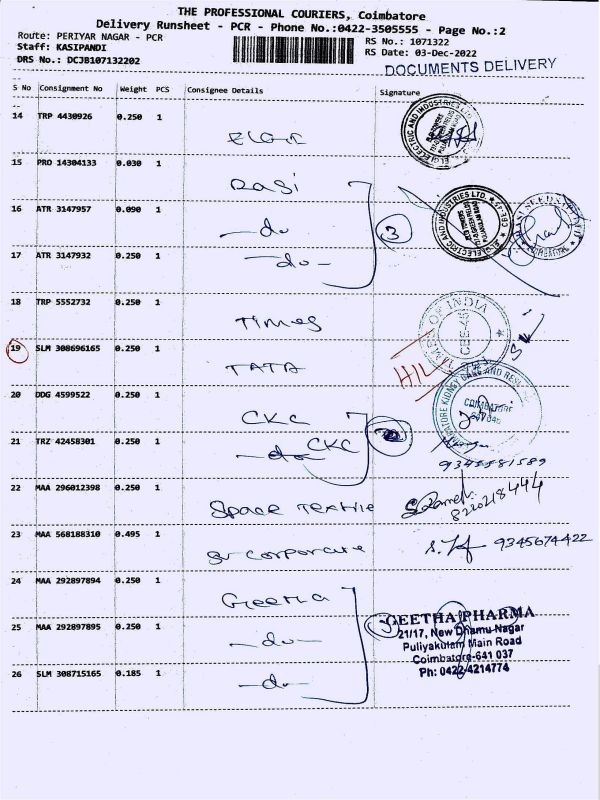 THE PROFESSIONAL COURIERS, Coimbatore
Delivery Runsheet - PCR - Phone No.:0422-3505555 - Page No.:2
Route: PERIYAR NAGAR - PCR
RS No.: 1071322
Staff: KASIPANDI
RS Date: 03-Dec-2022
DRS No.: DCJB107132202
DOCUMENTS DELIVERY
S No Consignment No Weight PCS Consignee Details Signature
14 TRP 4430926 0.250 1 ELGI
15 PRO 14304133 0.030 1 Rasi
16 ATR 3147957 0.090 1 -do-
3
17 ATR 3147932 0.250 1 -do-
18 TRP 5552732 0.250 1 Times
TIMES OF INDIA
CBE-45
19 SLM 308696165 0.250 1 TATA
HIL
20 DDG 4599522 0.250 1 CKC
COIMBATORE
21 TRZ 42458301 0.250 1 -do- CKC
22 MAA 296012398 0.250 1 Space Textile
8220218444
23 MAA 568188310 0.495 1 Sv Corporate
9345674422
24 MAA 292897894 0.250 1 Geetha
GEETHA PHARMA
25 MAA 292897895 0.250 1 -do-
21/17, New Dhamu Nagar
Puliyakulam Main Road
Coimbatore-641 037
26 SLM 308715165 0.185 1 -do-
Ph: 0422-4214774